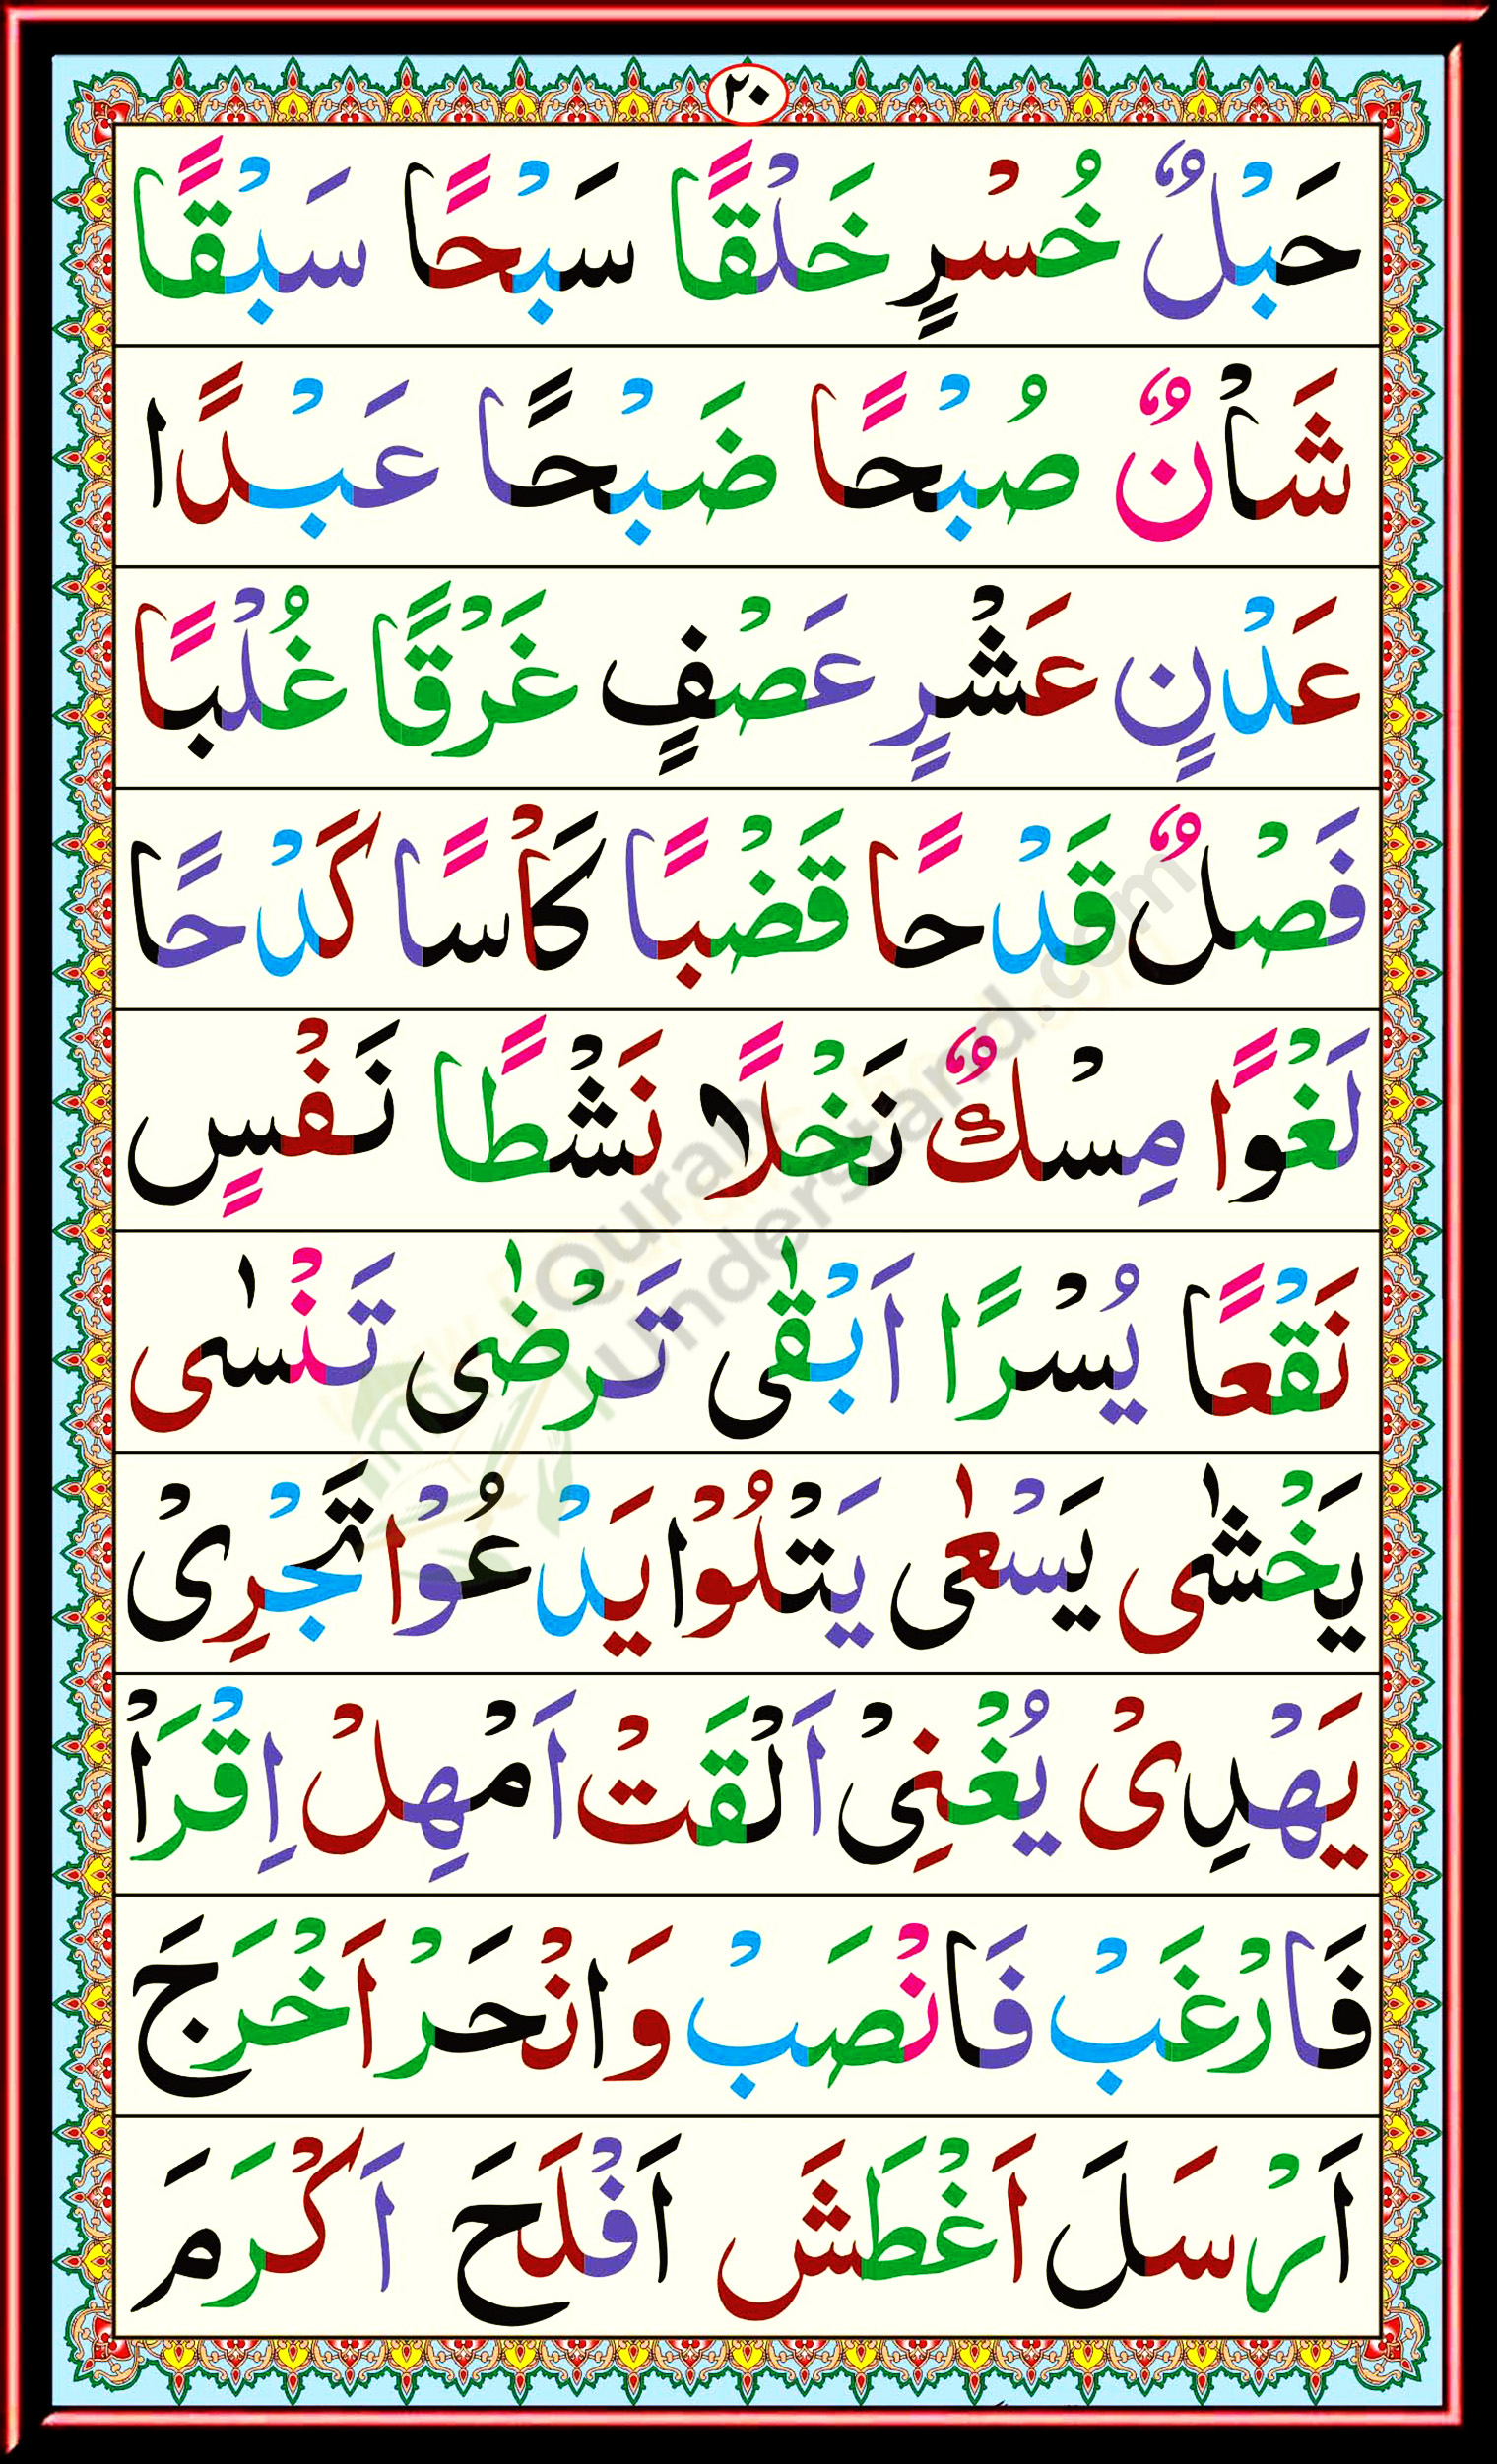 ٢٠
حَبْلٌ خُسْرٍ خَلْقًا سَبْحًا سَبْقًا
شَأْنٌ صُبْحًا ضَبْحًا عَبْدًا
عَدْنٍ عَشْرٍ عَصْفٍ غَرْقًا غُلْبًا
فَصْلٌ قَدْحًا قَضْبًا كَاْسًا كَدْحًا
لَغْوًا مِسْكٌ نَخْلًا نَشْطًا نَفْسٍ
نَقْعًا يُسْرًا اَبْقٰى تَرْضٰى تَنْسٰى
يَخْشٰى يَسْعٰى يَتْلُوْا يَدْعُوْا تَجْرِىْ
يَهْدِىْ يُغْنِىْ اَلْقَتْ اَمْهِلْ اِقْرَاْ
فَارْغَبْ فَانْصَبْ وَانْحَرْ اَخْرَجَ
اَرْسَلَ اَغْطَشَ اَفْلَحَ اَكْرَمَ
Quran
understand.com